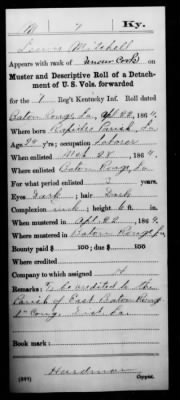 M 7 Ky.
Louis Mitchell
Appears with rank of Under Cook on
Muster and Descriptive Roll of a Detach-
ment of U. S. Vols. forwarded
for the 7 Reg't Kentucky Inf. Roll dated
Baton Rouge, La, Apl 22, 1864
Where born Rapides Parish, La
Age 24 y'rs; occupation Laborer
When enlisted 28, 1864
Where enlisted Baton Rouge, La
For what period enlisted 3 years.
Eyes Dark; hair Dark
Complexion ; height 6 ft. in.
When mustered in Apl 22, 1864
Where mustered in Baton Rouge, La
Bounty paid $ 100; due $ 100
Where credited
Company to which assigned
Remarks: To be credited to the
Parish of East Baton Rouge
2" Cong. Dist. La.
Book mark:
Hardman
Copyist.